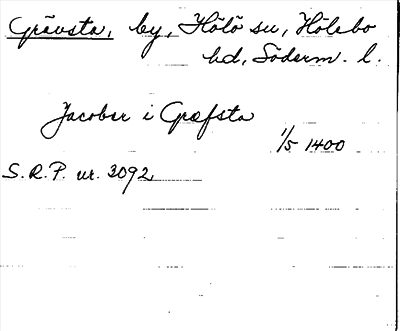 Grävsta, by, Hölö sn, Hölebo
hd, Söderm. l.
Jacober i Græfsta
1/5 1400
S.R.P. nr. 3092.